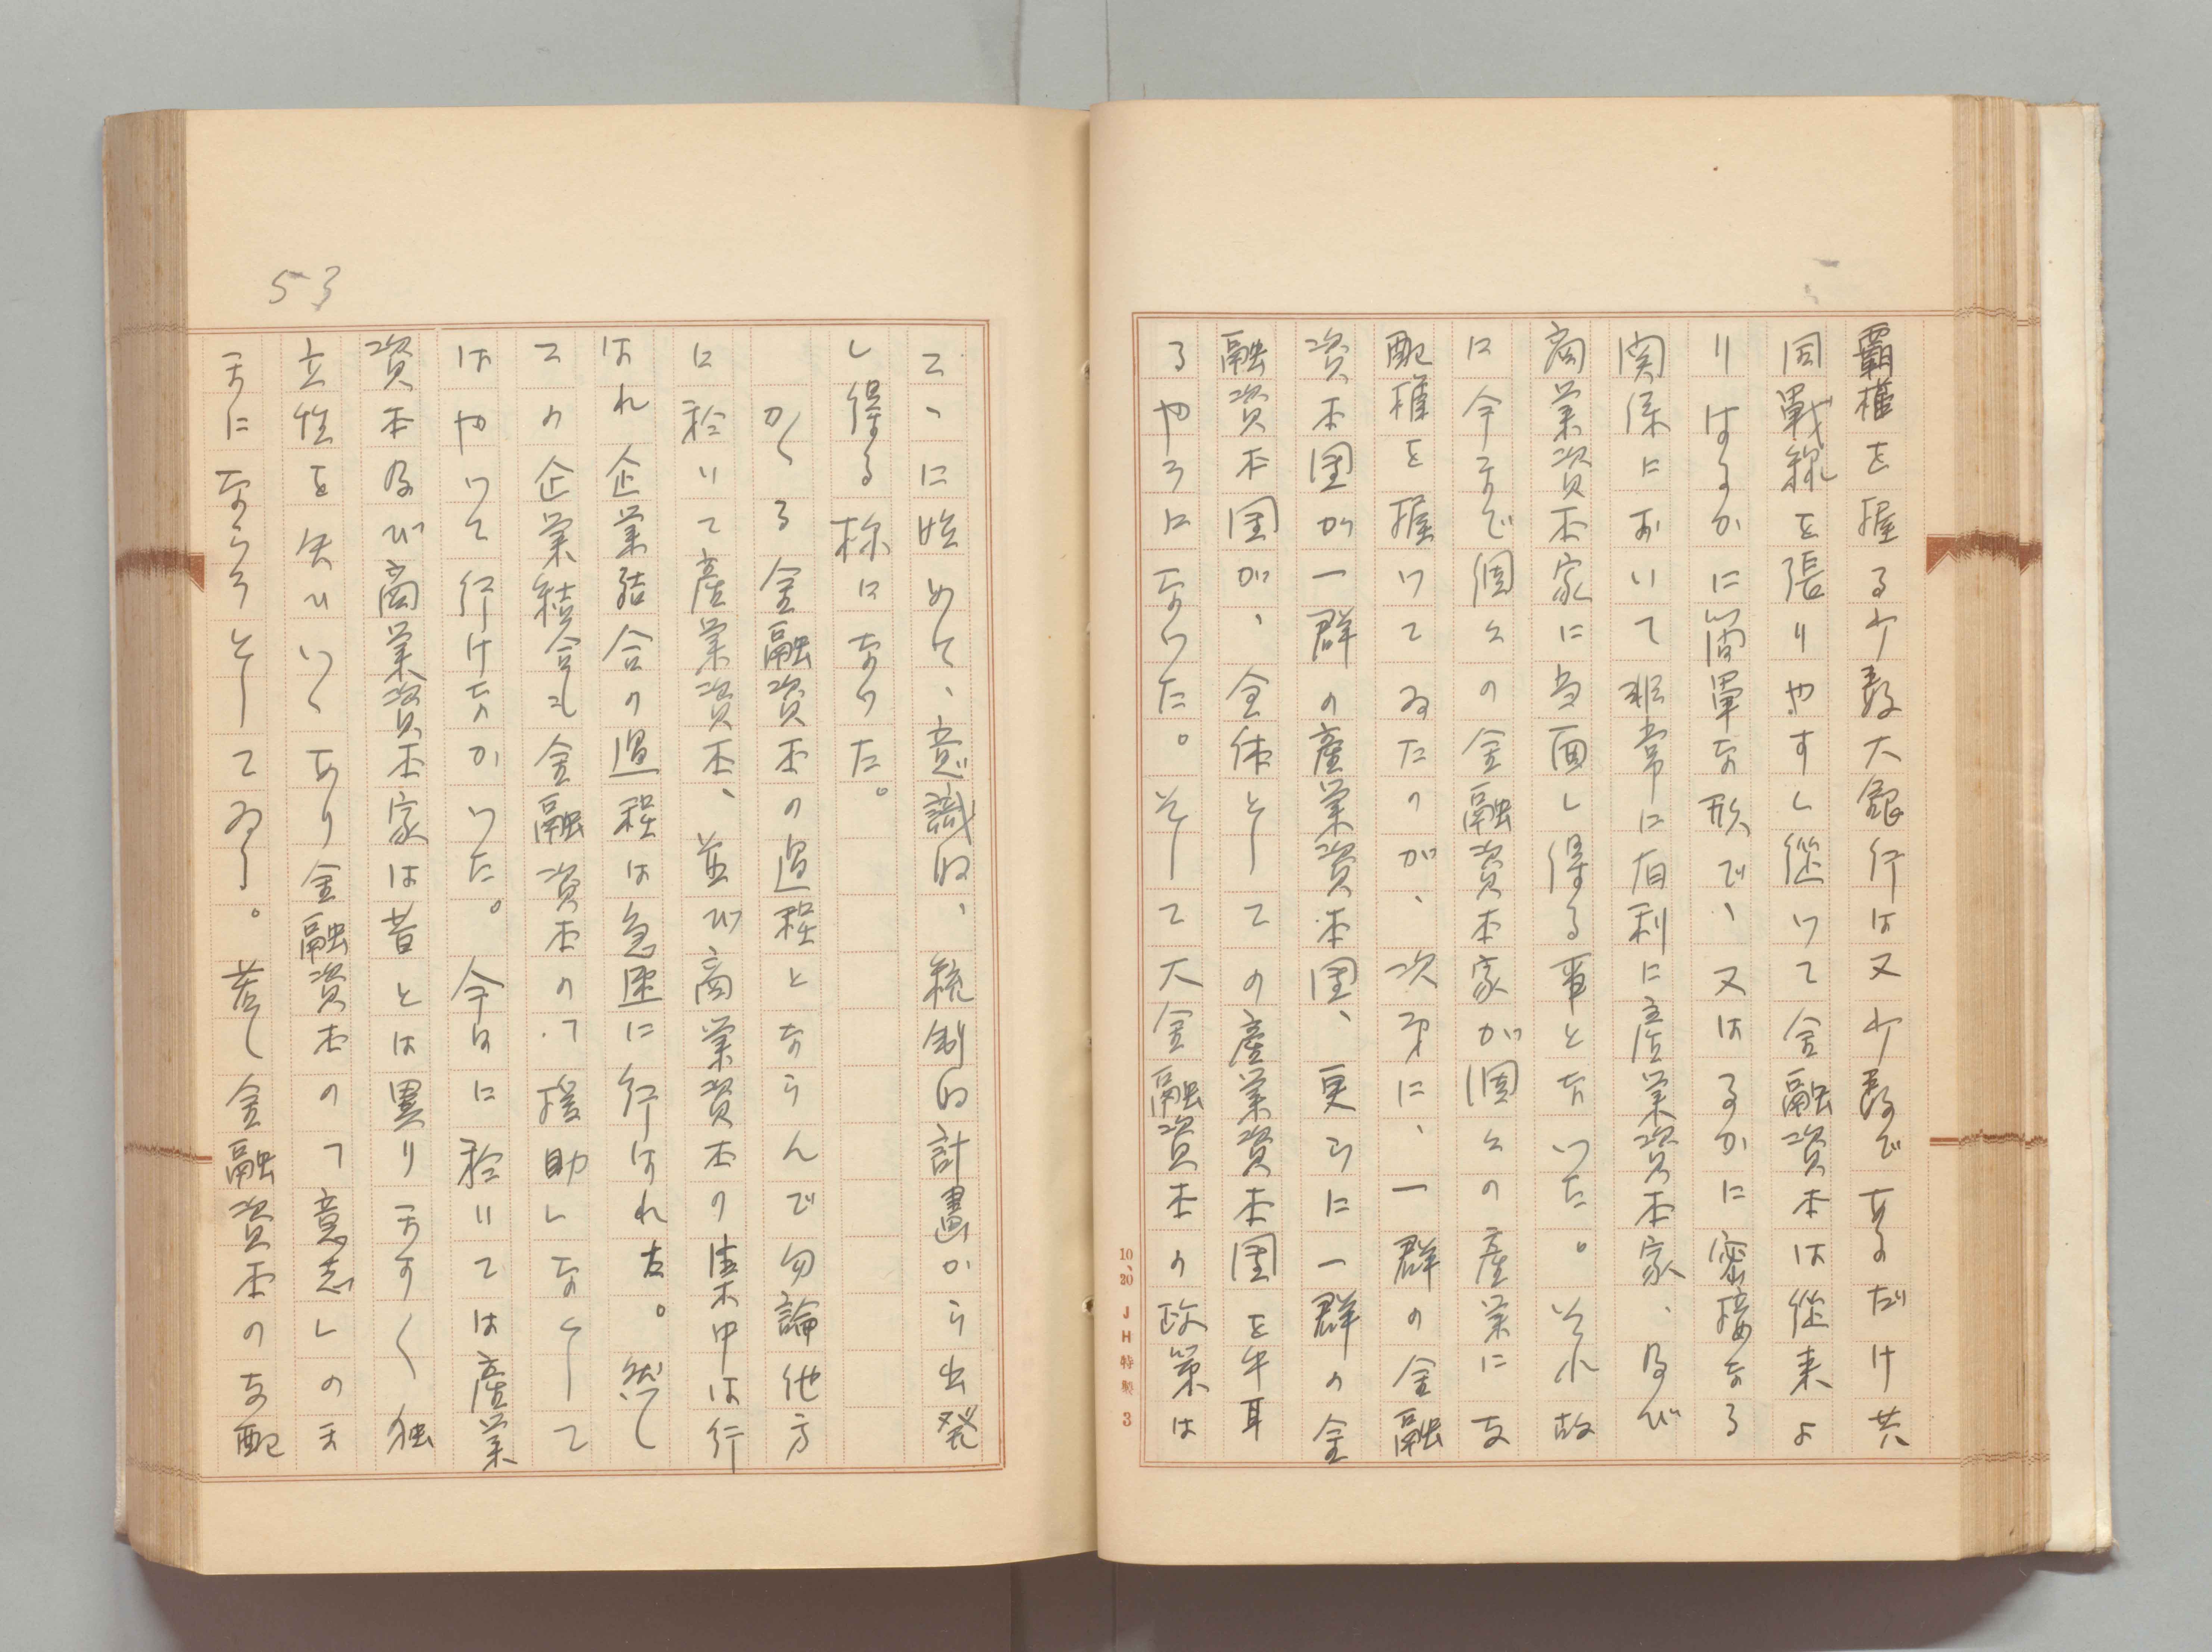 覇権を握る少数大銀行は又少数であるだけ共
同戦線を張りやすし従って金融資本は従来よ
りはるかに簡単な形で、又はるかに密接なる
関係において非常に有利に産業資本家、及び
商業資本家に当面し得る事となった。それ故
に今までで個々の金融資本家が個々の産業に支
配権を握ってゐたのが、次第に、一群の金融
資本団が一群の産業資本団、更らに一群の金
融資本団が、全体としての産業資本団を牛耳
るやうになった。そして大金融資本の政策は
10、20 JH特製 3
こゝに始めて、意識的、統制的計畫から出発
し得る様になった。
かくる金融資本の過程とならんで勿論他方
に於いて産業資本、並び商業資本の集中は行
はれ企業結合の過程は急速に行はれた。然し
この企業結合も金融資本のって援助しなくして
はやって行けなかった。今日に於いては産業
資本及び商業資本家は昔とは異り全く独
立性を失ひいくあり金融資本のって意志しのま
まにならうとしてゐる。若し金融資本の支配
53